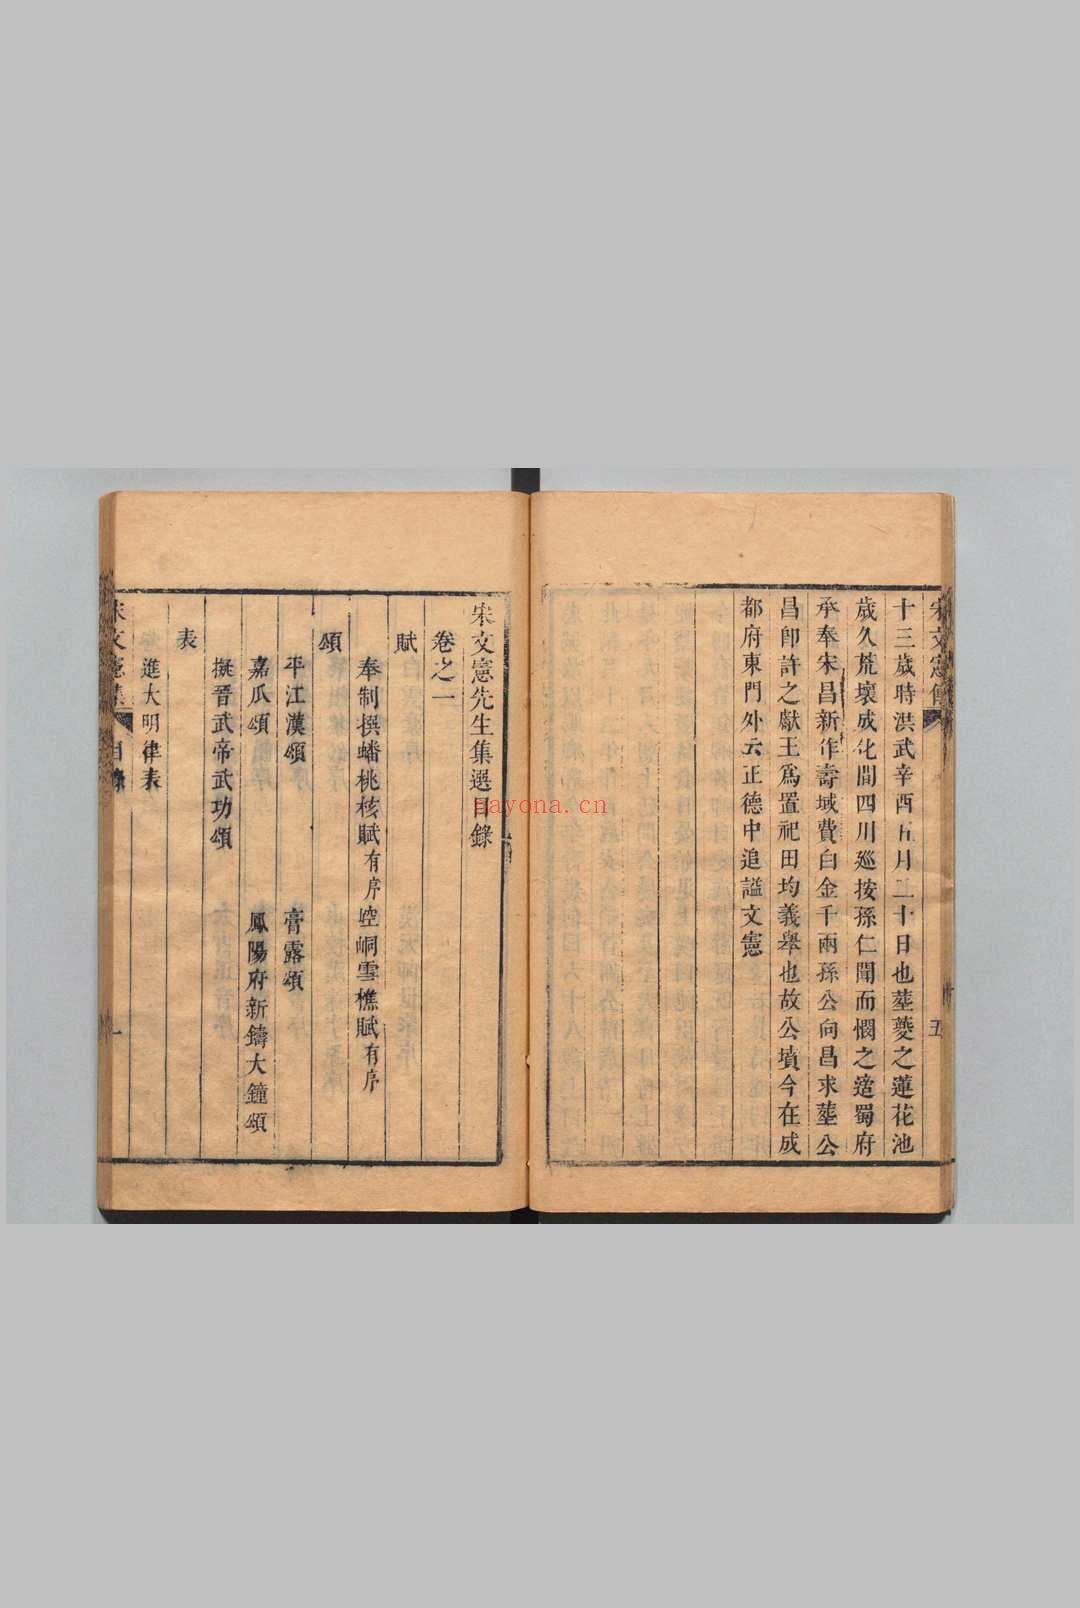 宋文憲傳
五
十三歲時洪武辛酉五月二十日也塟夔之蓮花池
歲久荒壞成化間四川廵按孫仁聞而憫之造蜀府
承奉宋昌新作壽域費白金千兩孫公向昌求塟公
昌卽許之獻王爲置祀田均義舉也故公墳今在成
都府東門外云正德中追謚文憲
宋文憲先生集選目錄
卷之一
賦
奉制撰蟠桃核賦有序 崆峒雪樵賦有序
頌
平江漢頌 膏露頌
嘉瓜頌 鳳陽府新鑄大鐘頌
擬晉武帝武功頌
表
進大明律表
宋文憲集
目錄
一
nayona.cn